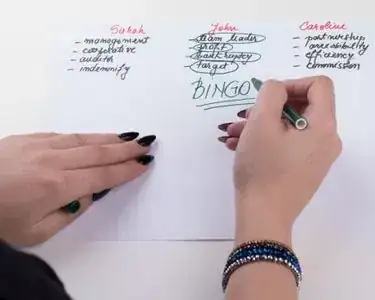 Sarah
- management
- corporative
- auditor
- indemnify
John
- team leader
- profit
- bankruptcy
- target
BINGO
Caroline
- partnership
- accessibility
- efficiency
- commission